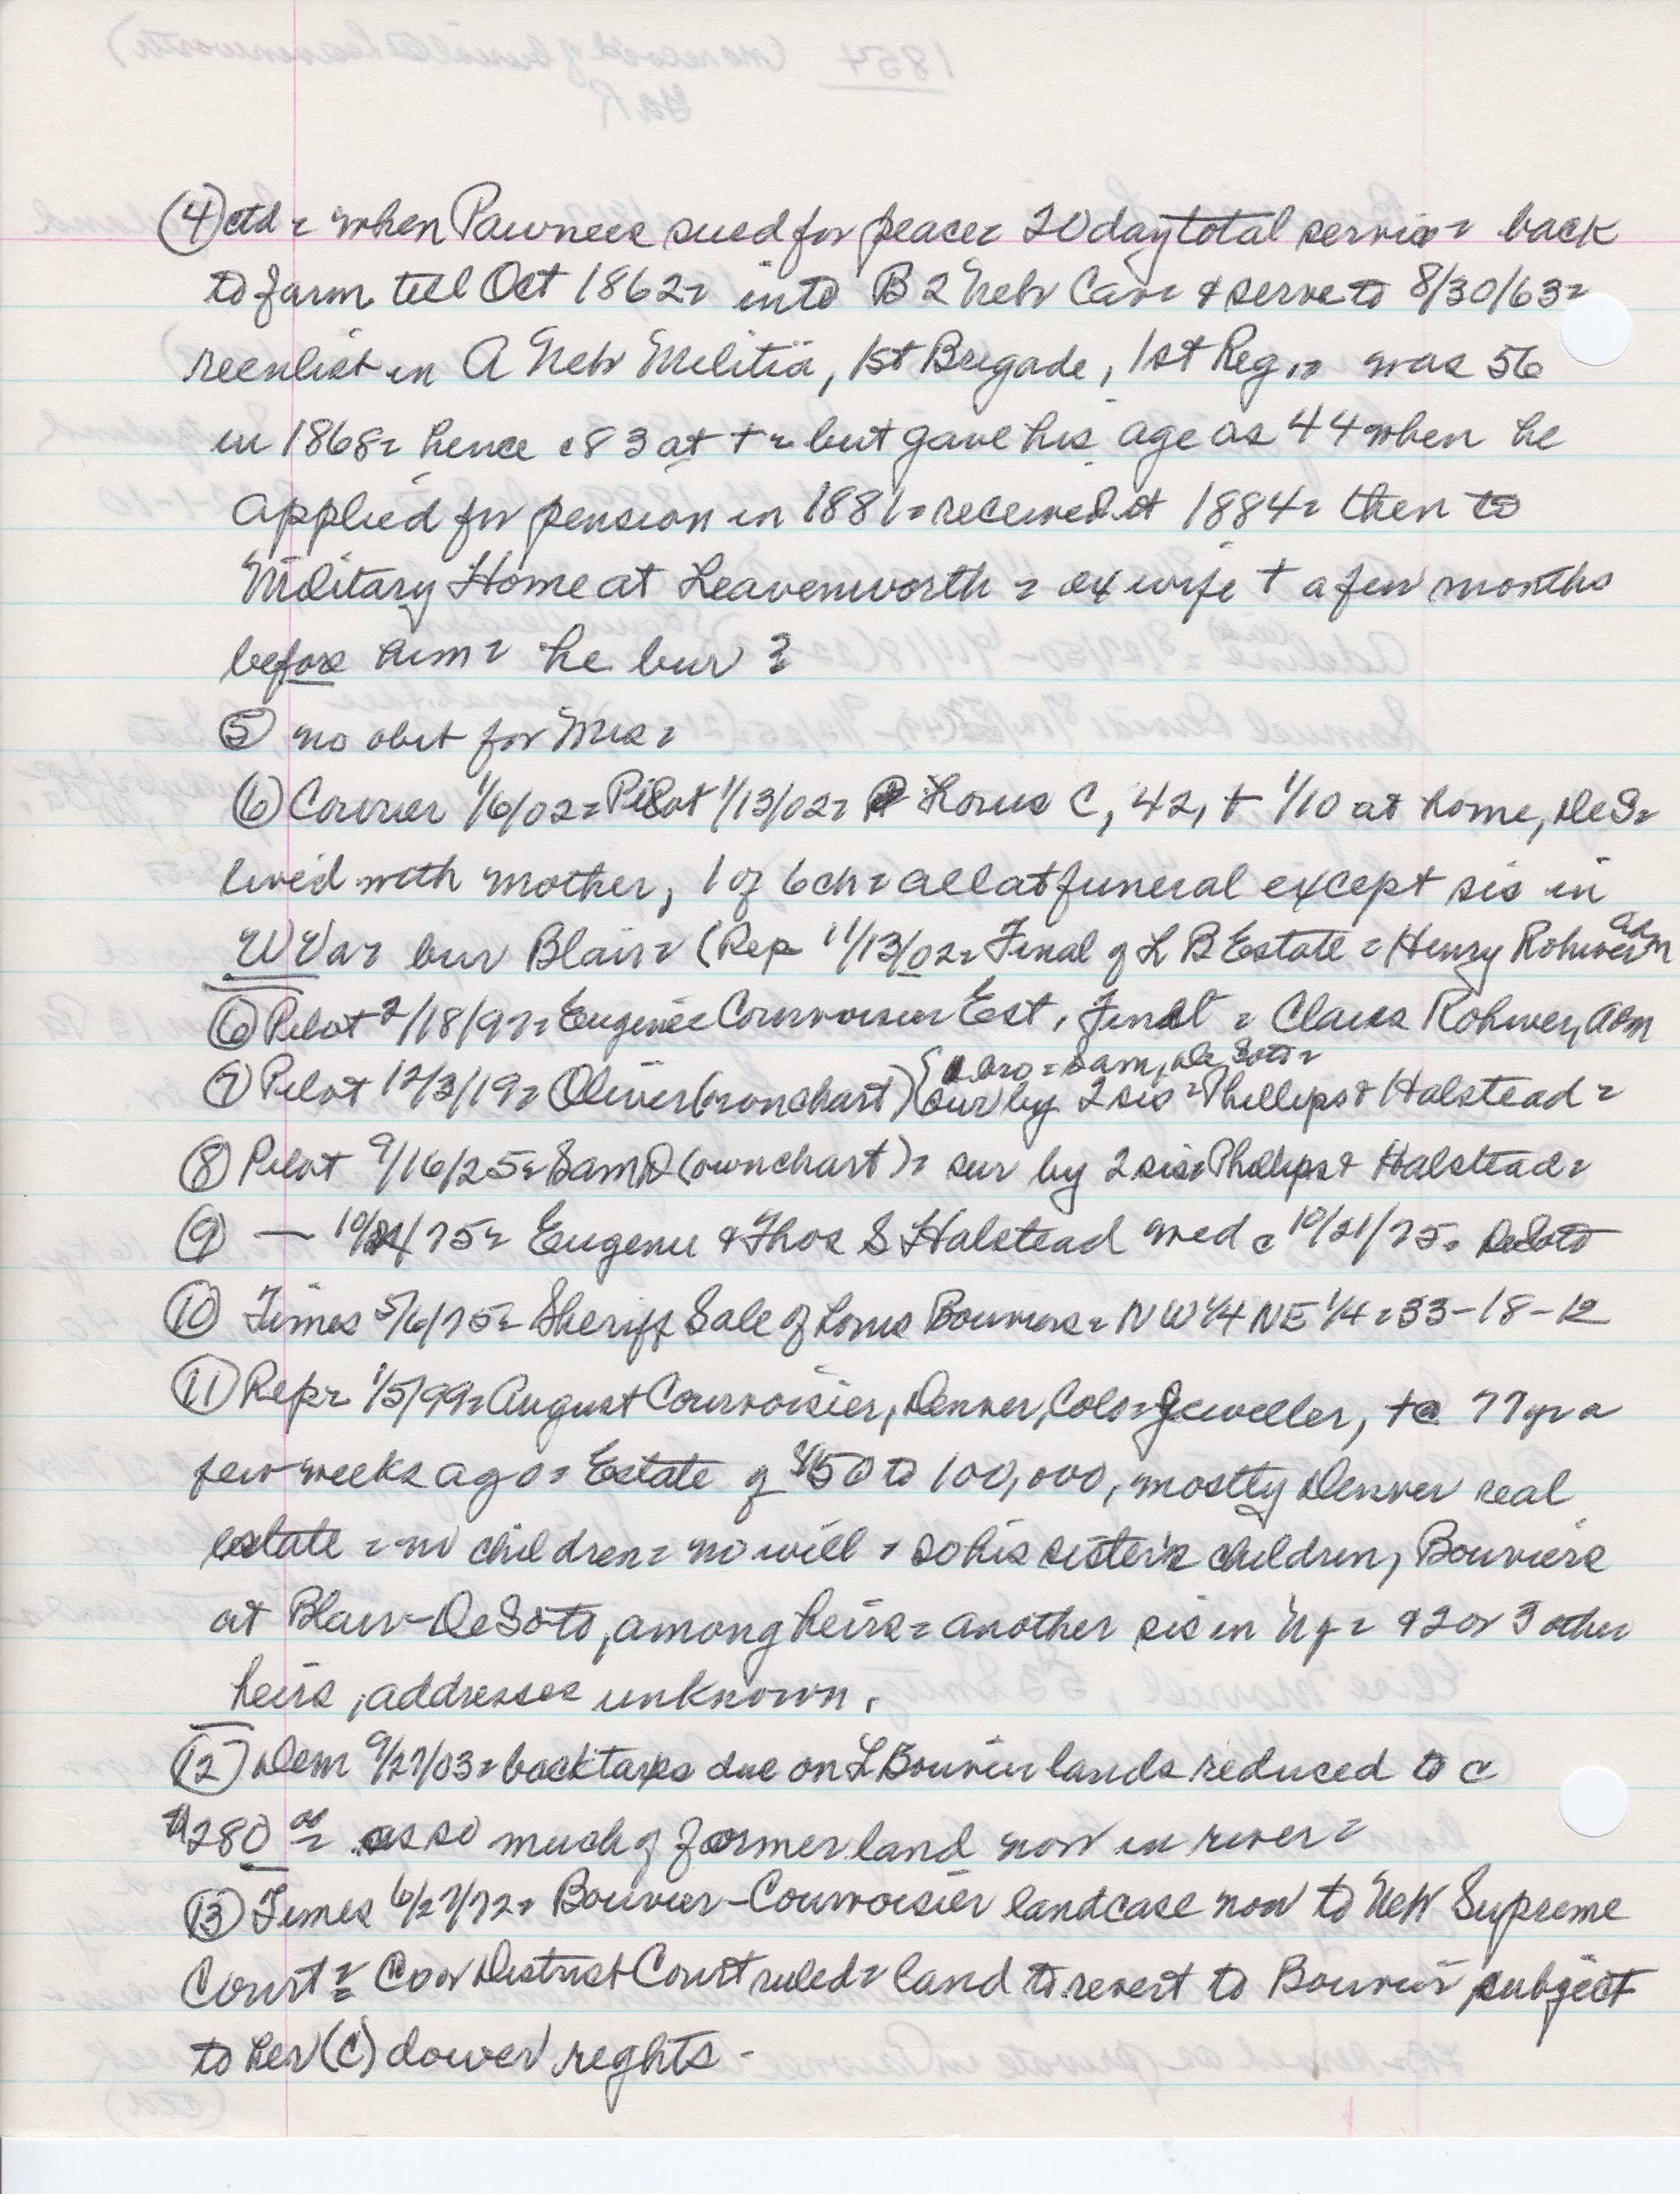 (4) ctd = when Pawnees sued for peace = 20 day total service = back
to farm till Oct 1862 = into B 2 Neb Cav = & serve to 8/30/63 =
reenlist in A Neb Militia, 1st Brigade, 1st Reg., = was 56
in 1868 = hence c83 at † = but gave his age as 44 when he
applied for pension in 1881 = received it 1884 = then to
Military Home at Leavenworth = ex wife † a few months
before him = he bur ?
(5) no obit for Mrs =
(6) Courier 1/6/02 = Pilot 1/13/02 = Louis C, 42, † 1/10 at home, DeS =
lived with mother, 1 of 6 ch = all at funeral except sis in
W Va = bur Blair = (Rep 11/13/02 = Final of L B Estate = Henry Rohwer adm
(6) Pilot 2/18/97 = Eugenie Courvoisier Est, Final = Claus Rohwer, adm
{1 bro = Sam, De Soto =
(7) Pilot 12/3/19 = Oliver (own chart) {sur by 2 sis = Phillips & Halstead =
(8) Pilot 9/16/25 = Sam D (own chart) = sur by 2 sis = Phillips & Halstead =
(9) — 10/21/75 = Eugenie & Thos S Halstead wed c 10/21/75 = DeSoto
(10) Times 5/6/75 = Sheriff Sale of Louis Bouviers = NW 1/4 NE 1/4 = 33-18-12
(11) Rep = 1/5/99 = August Courvoisier, Denver, Colo = Jeweller, † @ 77 yr a
few weeks ago = Estate of $50 to 100,000, mostly Denver real
estate = no children = no will = so his sister's children, Bouviers
at Blair-DeSoto, among heirs = another sis in NY = & 2 or 3 other
heirs, addresses unknown.
(12) Dem 9/27/03 = back taxes due on L Bouvier lands reduced to c
$280 00 = as so much of former land now in river =
(13) Times 6/27/72 = Bouvier-Courvoisier land case now to Neb Supreme
Court = Co or District Court ruled = land to revert to Bouvier subject
to her (C) dower rights -